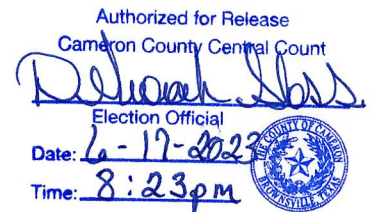 Authorized for Release
Cameron County Central Count
Election Official
Date: 6-17-2023
Time: 8:23pm
THE COUNTY OF CAMERON
BROWNSVILLE, TEXAS